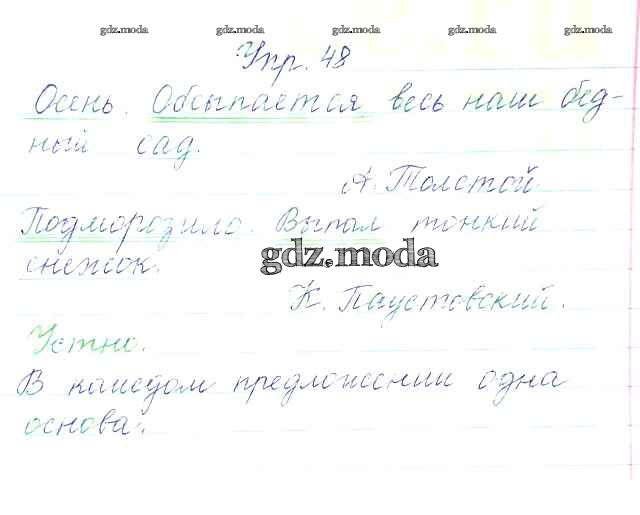 gdz.moda gdz.moda gdz.moda gdz.moda
Упр. 48
Осень. Обсыпается весь наш бед-
ный сад.
А. Толстой.
Подморозило. Выпал тонкий
снежок.
gdz.moda
К. Паустовский.
Устно.
В каждом предложении одна
основа.